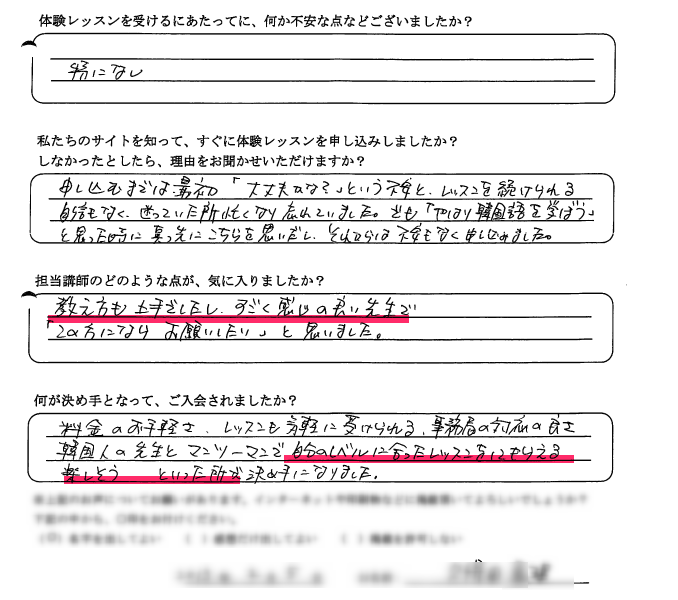 体験レッスンを受けるにあたってに、何か不安な点などございましたか？
特になし
私たちのサイトを知って、すぐに体験レッスンを申し込みしましたか？
しなかったとしたら、理由をお聞かせいただけますか？
申し込むまでは最初「大丈夫かな？」という不安と、レッスンを続けられる
自信もなく、迷っていた所 忙しくなり忘れていました。でも「やはり韓国語を学ぼう」
と思った時に真っ先にこちらを思いだし、それからは不安もなく申し込めました。
担当講師のどのような点が、気に入りましたか？
教え方も上手でしたし、すごく感じの良い先生で
「この方になら お願いしたい」と思いました。
何が決め手となって、ご入会されましたか？
料金のお手軽さ、レッスンも気軽に受けられる、事務局の対応の良さ
韓国人の先生とマンツーマンで自分のレベルに合ったレッスンをしてもらえる
楽しそう といった所が決め手になりました。